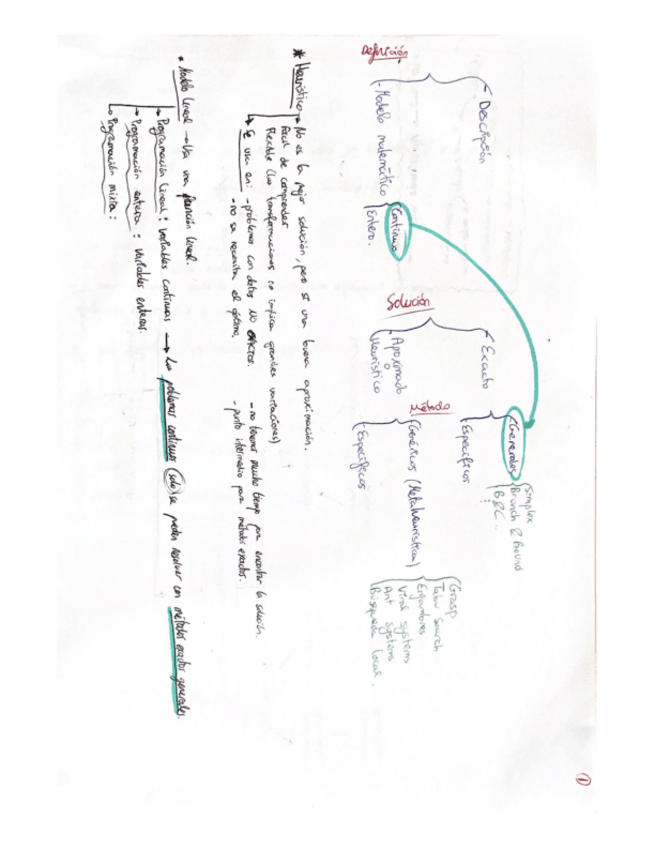 ①
Definición
- Descripción
- Modelo matemático
Continuo
Entero.
Solución
Exacto
Aproximado
o
Heurístico
Método
Generales
Específicos
Simplex
Branch & Bound
B&C
Genéricos (Metaheurística)
Específicos
Grasp
Tabu search
Enjambres
Viral systems
Ant systems
Búsqueda local.
* Heurístico → No es la mejor solución, pero si una buena aproximación.
Fácil de comprender
Flexible (las transformaciones no implica grandes variaciones)
Se usa en: - problemas con datos NO EXACTOS. - no tenemos mucho tiempo para encontrar la solución.
- no se necesita el óptimo. - punto intermedio para métodos exactos.
* Modelo lineal → Usa una función lineal.
→ Programación lineal: variables continuas → Los problemas continuos (solo) se pueden resolver con métodos exactos generales.
→ Programación entera: variables enteras.
→ Programación mixta: